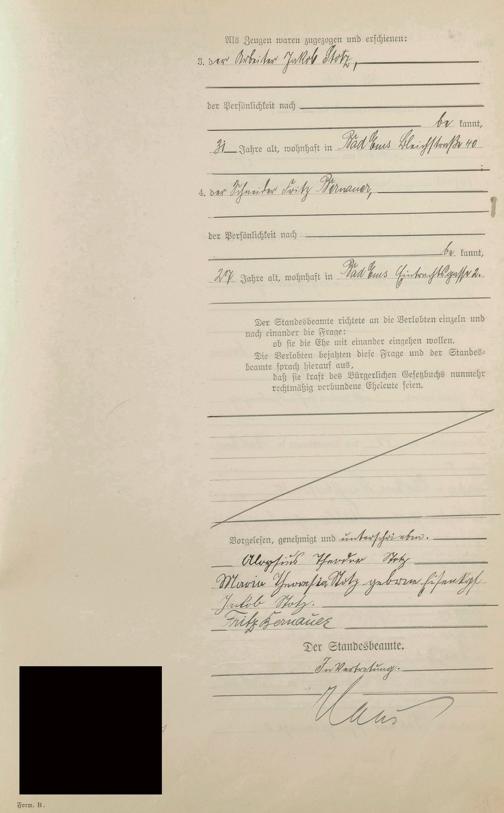 Als Zeugen waren zugezogen und erschienen:
3. der Arbeiter Jakob Stotz,
der Persönlichkeit nach
be kannt,
31 Jahre alt, wohnhaft in Bad Ems Bleichstraße 40
4. der Schneider Fritz Bernauer,
der Persönlichkeit nach
be kannt,
27 Jahre alt, wohnhaft in Bad Ems Eintrachtsgasse 2.
Der Standesbeamte richtete an die Verlobten einzeln und
nach einander die Frage:
ob sie die Ehe mit einander eingehen wollen.
Die Verlobten bejahten diese Frage und der Standes-
beamte sprach hierauf aus,
daß sie kraft des Bürgerlichen Gesetzbuchs nunmehr
rechtmäßig verbundene Eheleute seien.
Vorgelesen, genehmigt und unterschrieben.
Aloysius Theodor Stotz
Maria Theresia Stotz geborene
Jakob Stotz.
Fritz Bernauer
Der Standesbeamte.
In Vertretung.
Form. B.